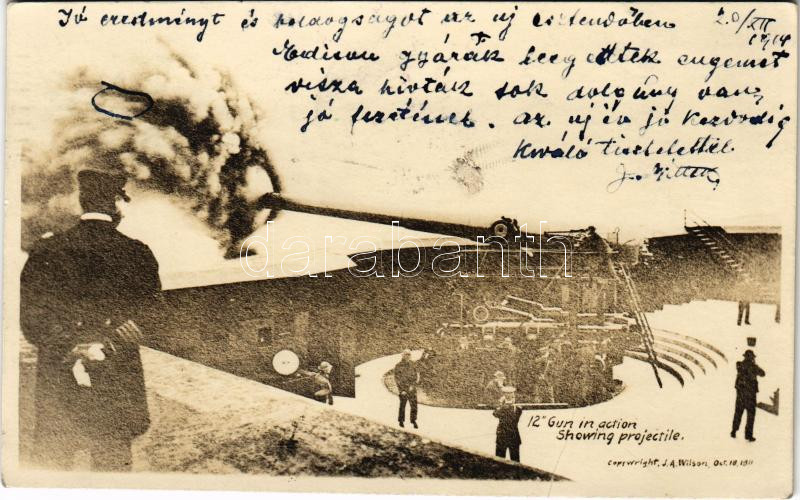 Jó eredményt és boldogságot az új esztendőben
20/XII
1914
Edison gyárak leégettek engemet
vissza hívták sok dolgom van
jó fizetések. az új év jó kezdődig
kiváló tisztelettel
J.
darabanth.com
12" Gun in action
Showing projectile.
Copywright, J.A. Wilson, Oct. 18, 1911